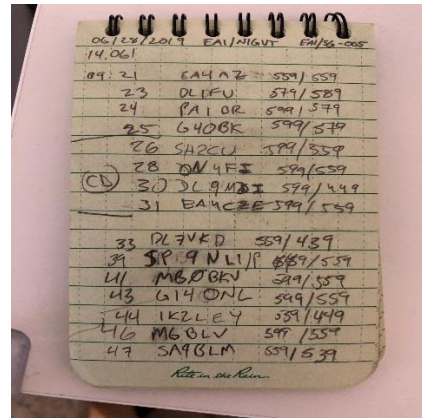 06/28/2019 EA1/N1GVT EA1/SG-005
14.061
09:21 EA4AZ 559/559
23 DL1FU 579/589
24 PA1BR 599/579
25 G4OBK 599/579
26 SH2KU 599/559
28 ON4FI 599/559
CD 30 DL9MDI 579/449
31 EA4CZE 599/559
33 DL7VKD 559/439
39 SP9NLI/P 559/559
41 MB0BKV 599/559
43 GI4ONL 599/559
44 IK2LEY 559/449
46 M6BLV 599/559
47 SA9BLM 559/539
Rite in the Rain